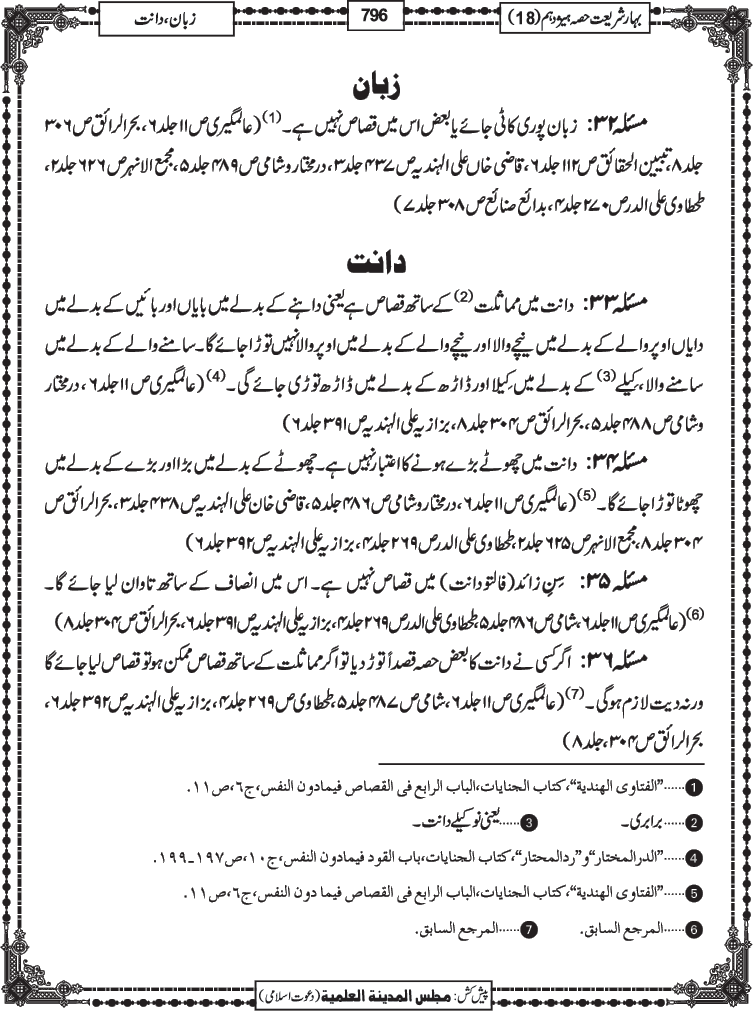 بہار شریعت حصہ ہیژدہم (18)
796
زبان، دانت
زبان
مسئلہ ۳۲: زبان پوری کاٹی جائے یا بعض اس میں قصاص نہیں ہے۔ (1) (عالمگیری ص ۱۱ جلد ۶، بحرالرائق ص ۳۰۶
جلد ۸، تبیین الحقائق ص ۱۱۲ جلد ۶، قاضی خاں علی الہندیہ ص ۴۳۷ جلد ۳، درمختار و شامی ص ۴۸۹ جلد ۵، مجمع الانہر ص ۶۲۶ جلد ۲،
طحطاوی علی الدر ص ۲۷۰ جلد ۴، بدائع صنائع ص ۳۰۸ جلد ۷)
دانت
مسئلہ ۳۳: دانت میں مماثلت (2) کے ساتھ قصاص ہے یعنی داہنے کے بدلے میں بایاں اور بائیں کے بدلے میں
دایاں اوپر والے کے بدلے میں نیچے والا اور نیچے والے کے بدلے میں اوپر والا نہیں توڑا جائے گا۔ سامنے والے کے بدلے میں
سامنے والا، کیلے (3) کے بدلے میں کیلا اور ڈاڑھ کے بدلے میں ڈاڑھ توڑی جائے گی۔ (4) (عالمگیری ص ۱۱ جلد ۶، درمختار
و شامی ص ۴۸۸ جلد ۵، بحرالرائق ص ۳۰۴ جلد ۸، بزازیہ علی الہندیہ ص ۳۹۱ جلد ۶)
مسئلہ ۳۴: دانت میں چھوٹے بڑے ہونے کا اعتبار نہیں ہے۔ چھوٹے کے بدلے میں بڑا اور بڑے کے بدلے میں
چھوٹا توڑا جائے گا۔ (5) (عالمگیری ص ۱۱ جلد ۶، درمختار و شامی ص ۴۸۶ جلد ۵، قاضی خان علی الہندیہ ص ۴۳۸ جلد ۳، بحرالرائق ص
۳۰۴ جلد ۸، مجمع الانہر ص ۶۲۵ جلد ۲، طحطاوی علی الدر ص ۲۶۹ جلد ۴، بزازیہ علی الہندیہ ص ۳۹۲ جلد ۶)
مسئلہ ۳۵: سِنِ زائد (فالتو دانت) میں قصاص نہیں ہے۔ اس میں انصاف کے ساتھ تاوان لیا جائے گا۔
(6) (عالمگیری ص ۱۱ جلد ۶، شامی ص ۴۸۶ جلد ۵، طحطاوی علی الدر ص ۲۶۹ جلد ۴، بزازیہ علی الہندیہ ص ۳۹۱ جلد ۶، بحرالرائق ص ۳۰۴ جلد ۸)
مسئلہ ۳۶: اگر کسی نے دانت کا بعض حصہ قصداً توڑ دیا تو اگر مماثلت کے ساتھ قصاص ممکن ہو تو قصاص لیا جائے گا
ورنہ دیت لازم ہوگی۔ (7) (عالمگیری ص ۱۱ جلد ۶، شامی ص ۴۸۷ جلد ۵، طحطاوی ص ۲۶۹ جلد ۴، بزازیہ علی الہندیہ ص ۳۹۲ جلد ۶،
بحرالرائق ص ۳۰۴، جلد ۸)
1 ......"الفتاوی الھندیة"، کتاب الجنایات، الباب الرابع فی القصاص فیمادون النفس، ج٦، ص١١.
2 ...... برابری۔
3 ...... یعنی نوکیلے دانت۔
4 ......"الدرالمختار" و "ردالمحتار"، کتاب الجنایات، باب القود فیمادون النفس، ج١٠، ص١٩٧۔١٩٩.
5 ......"الفتاوی الھندیة"، کتاب الجنایات، الباب الرابع فی القصاص فیما دون النفس، ج٦، ص١١.
6 ......المرجع السابق.
7 ......المرجع السابق.
پیش کش: مجلس المدینة العلمیة (دعوت اسلامی)